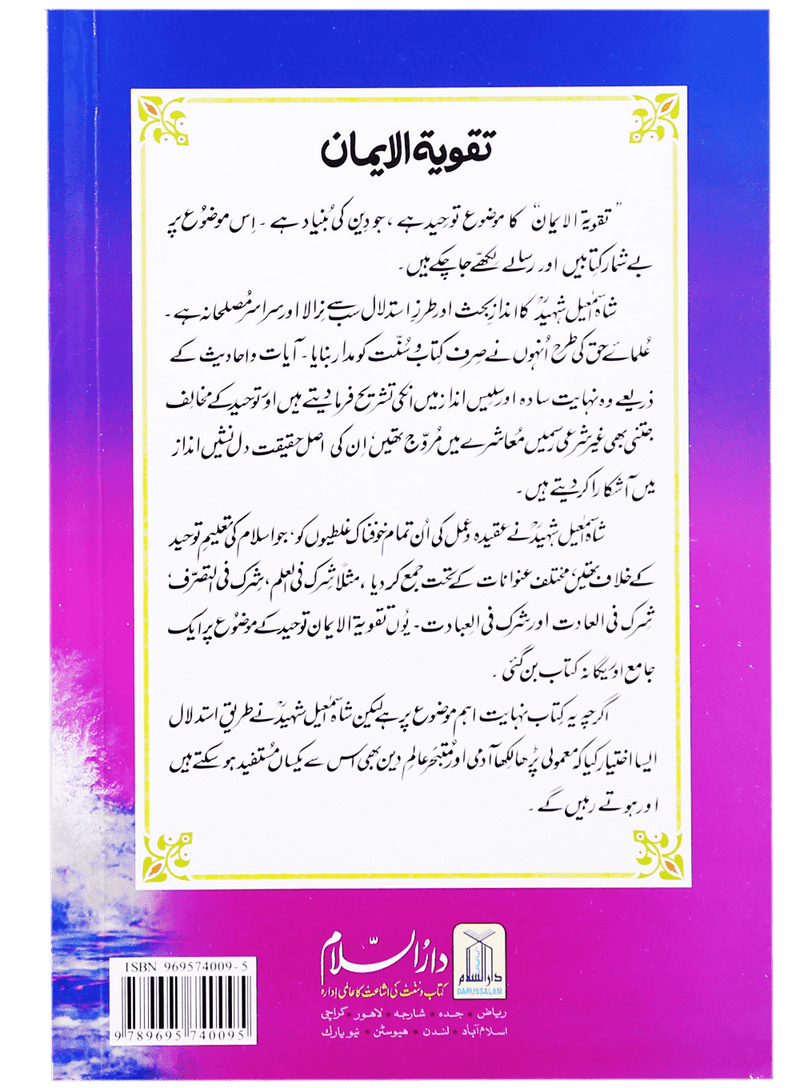 تقویۃ الایمان
”تقویۃ الایمان“ کا موضوع توحید ہے، جو دِین کی بُنیاد ہے۔ اِس موضوع پر
بے شمار کتابیں اور رسالے لکھّے جا چکے ہیں۔
شاہ اسمٰعیل شہیدؒ کا اندازِ بحث اور طرزِ استدلال سب سے نرالا اور سراسر مُصلحانہ ہے۔
عُلمائے حق کی طرح اُنہوں نے صِرف کِتاب و سُنّت کو مدار بنایا۔ آیات و احادیث کے
ذریعے وہ نہایت سادہ اور سلیس انداز میں اُنکی تشریح فرما دیتے ہیں اور توحید کے مخالف
جتنی بھی غیر شرعی رسمیں مُعاشرے میں مُروّج تھیں اِن کی اصل حقیقت دِل نشیں انداز
میں آشکارا کر دیتے ہیں۔
شاہ اسمٰعیل شہیدؒ نے عقیدہ و عمل کی اُن تمام خوفناک غلطیوں کو، جو اسلام کی تعلیمِ توحید
کے خلاف تھیں، مختلف عنوانات کے تحت جمع کر دیا، مثلاً شِرک فی العلم، شِرک فی التصرّف،
شِرک فی العادت اور شِرک فی العِبادت۔ یُوں تقویۃ الایمان توحید کے موضُوع پر ایک
جامع اور یگانہ کتاب بن گئی۔
اگرچہ یہ کِتاب نہایت اہم موضوع پر ہے لیکن شاہ اسمٰعیل شہیدؒ نے طریقِ استدلال
ایسا اختیار کیا کہ معمولی پڑھا لکھا آدمی اور مُتبحّر عالمِ دین بھی اس سے یکساں مُستفید ہو سکتے ہیں
اور ہوتے رہیں گے۔
دارُالسّلام
کتاب و سنّت کی اشاعت کا عالمی ادارہ
ریاض • جدہ • شارجہ • لاہور • کراچی
اسلام آباد • لندن • هیوسٹن • نیو یارک
دارالسلام
DARUSSALAM
ISBN 969574009-5
9 789695 740095